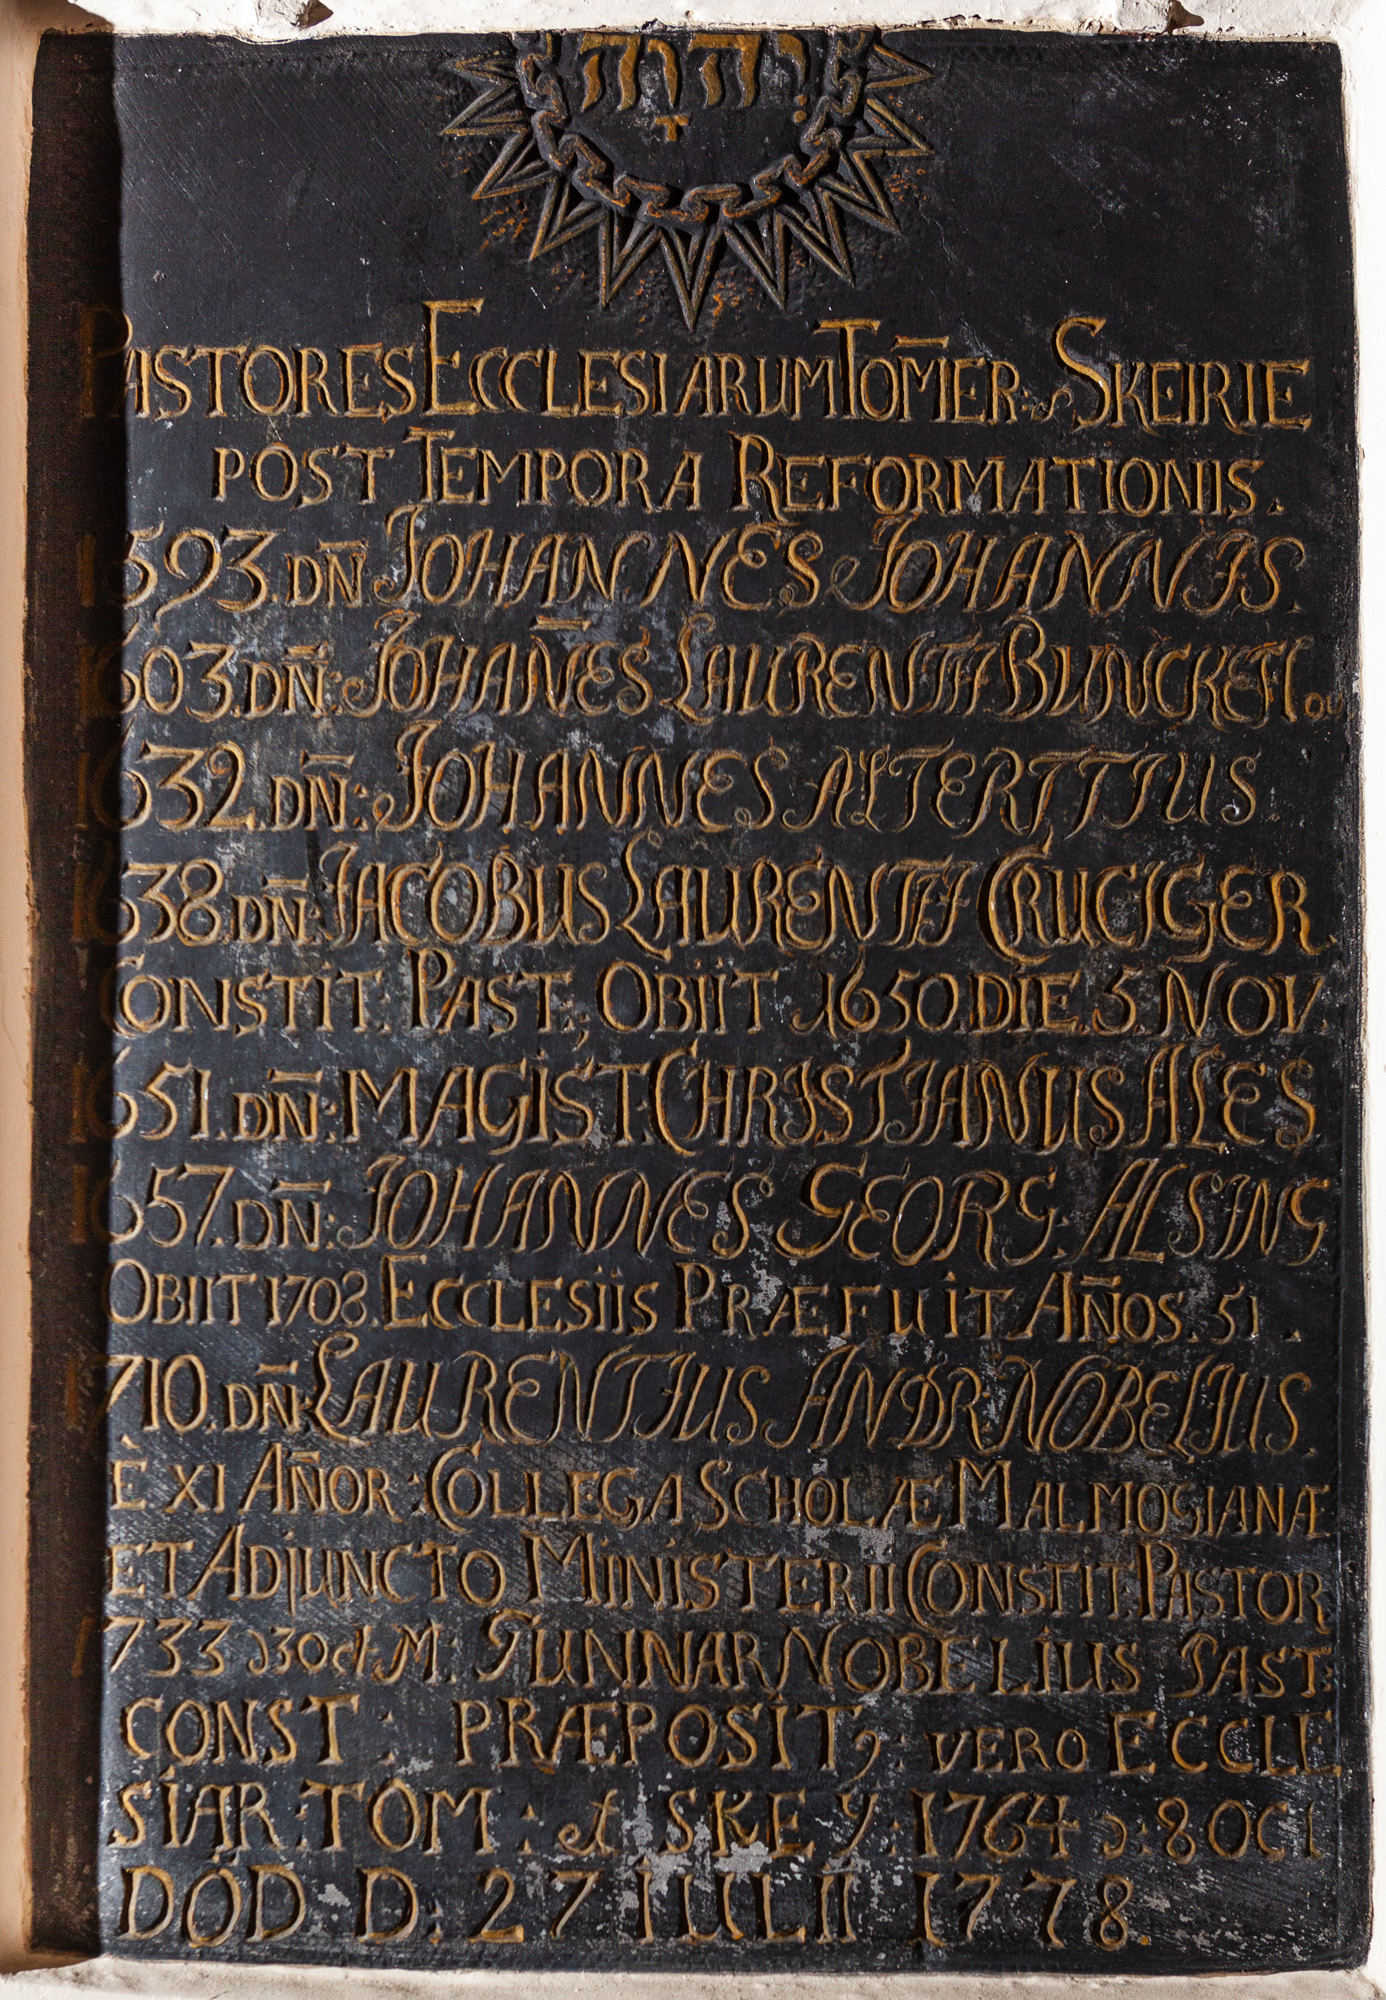 יהוה
PASTORES ECCLESIARUM TOM̄ER: & SKEIRIE
POST TEMPORA REFORMATIONIS.
1593. DN̄ JOHANNES JOHANNIS.
1603. DN̄: JOHAN̄ES LAURENTII BUNCKEFLOU
1632. DN̄: JOHANNES ALTERTTIUS
1638. DN̄: JACOBUS LAURENTII CRUCIGER
CONSTIT: PAST; OBIIT 1650. DIE. 5. NOV.
1651. DN̄: MAGIST. CHRISTIANUS ALES
1657. DN̄: JOHANNES GEORG: ALSING
OBIIT 1708. ECCLESIIS PRÆFUIT AN̄OS. 51.
1710. DN̄: LAURENTIUS ANDR: NOBELIUS.
E XI AN̄OR: COLLEGA SCHOLÆ MALMOGIANÆ
ET ADJUNCTO MINISTERII CONSTIT: PASTOR
1733 d 30 d. M: GUNNAR NOBELIUS PAST:
CONST: PRÆPOSIT9: VERO ECCLE
SIAR: TOM: et SKEY: 1764 d: 8 OCT
DÖD D: 27 IULII 1778.